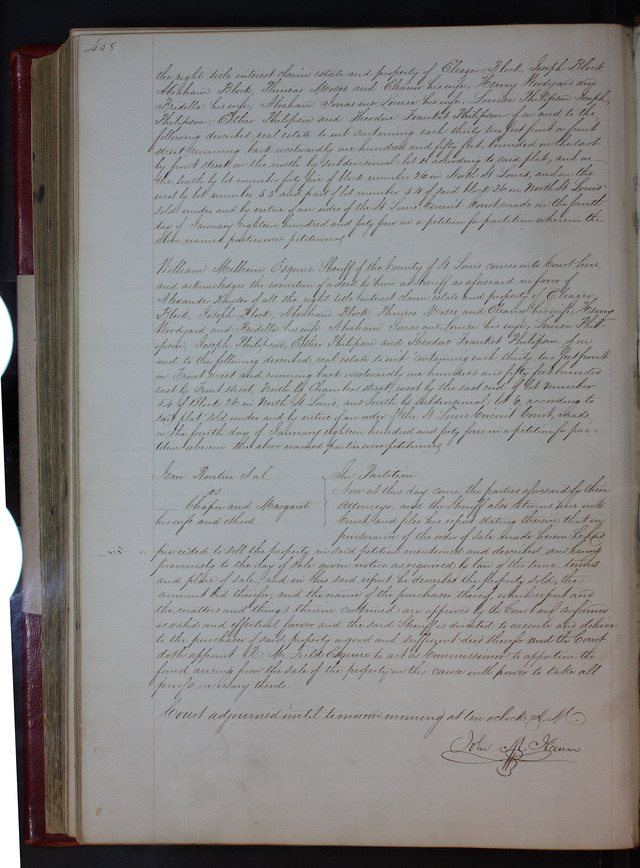 458
the right title interest claim estate and property of Eleazer Block, Joseph Block
Abraham Block, Phineas Moses and Eleanor his wife, Henry Woodyard and
Pridella his wife, Abraham Jonas and Louisa his wife, Louisa Philipson Joseph
Philipson, Esther Philipson and Theodore Franket Philipson of in and to the
following described real estate to wit containing each thirty two feet front on front
street running back westwardly one hundred and fifty feet, bounded on the east
by front street on the north by subdivisional lot according to said plat, and on
the South by lot number forty five of block number 26 in North St Louis, and on the
west by lot number 53 and part of lot number 54 of said block 26 in North St Louis
sold under and by virtue of an order of the St Louis Circuit Court made on the fourth
day of January eighteen hundred and forty four in a petition for partition wherein the
above named parties were petitioners
William Milburn Esquire Sheriff of the County of St Louis comes into Court here
and acknowledges the execution of a deed by him as Sheriff as aforesaid in favor of
Alexander Kayser of all the right title interest claim estate and property of Eleazer
Block, Joseph Block, Abraham Block, Phineas Moses and Eleanor his wife, Henry
Woodyard and Pridella his wife Abraham Jonas and Louisa his wife, Louisa Phil
ipson, Joseph Philipson, Esther Philipson and Theodore Franket Philipson of in
and to the following described real estate to wit containing each thirty two feet front
on Front street and running back westwardly one hundred and fifty feet bounded
east by Front street, North by Chambers street, west by the east end of lot number
54 of Block 26 in North St Louis, and South by subdivisional lot 6, according to
said plat sold under and by virtue of an order of the St Louis Circuit Court, made
on the fourth day of January eighteen hundred and forty four in a petition for par-
tition wherein the above named parties were petitioners
Jean et al
vs
Chapin and Margaret
his wife and others
In Partition
Now at this day come the parties aforesaid by their
Attorneys, and the Sheriff also returns here into
Court and files his report stating therein that in
pursuance of the order of sale made herein he had
proceeded to sell the property in said petition mentioned and described and having
previously to the day of sale given notice as required by law of the time, terms
and place of sale, and in his said report he describes the property sold, the
amount bid therefor, and the name of the purchaser thereof which report and
the matters and things therein contained are approved by the Court and confirmed
as valid and effectual forever and the said Sheriff is directed to execute and deliver
to the purchaser of said property a good and sufficient deed therefor and the Court
doth appoint Esquire to act as Commissioner to apportion the
fund arising from the sale of the property in this cause with power to take all
proofs necessary thereto.
Court adjourned until tomorrow morning at ten oclock A.M.
John M Krum